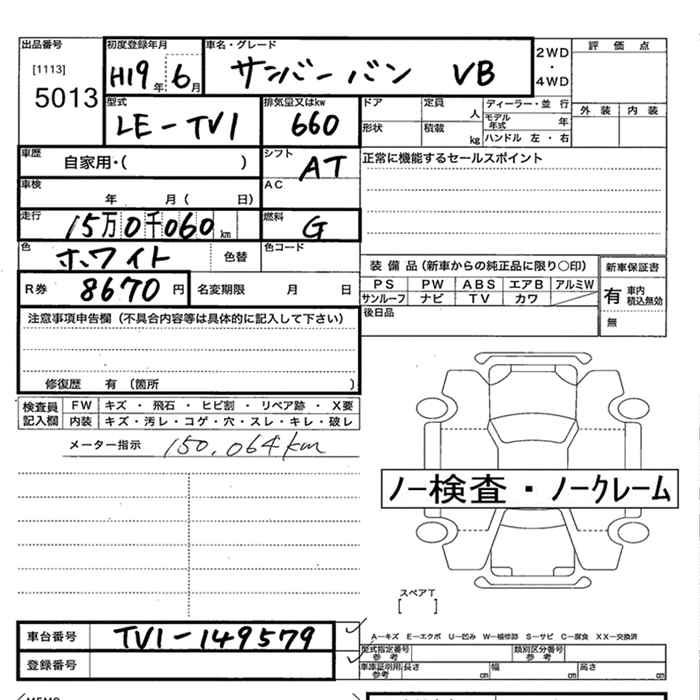 出品番号 初度登録年月 車名・グレード 2WD・4WD 評価点
[1113] H19年 6月 サンバーバン VB
5013 型式 排気量又はkw ドア 定員 人 ディーラー・並行 外装 内装
LE-TV1 660 形状 積載 kg モデル年式 年
ハンドル 左・右
車歴 自家用・( ) シフト AT 正常に機能するセールスポイント
車検 年 月( 日) AC
走行 15万0千060km 燃料 G
色 ホワイト 色替 色コード
R券 8670円 名変期限 月 日
装備品(新車からの純正品に限り○印) 新車保証書
PS PW ABS エアB アルミW 有 車内 積込無効
サンルーフ ナビ TV カワ
後日品 無
注意事項申告欄(不具合内容等は具体的に記入して下さい)
修復歴 有 (箇所 )
検査員記入欄 FW キズ・飛石・ヒビ割・リペア跡・X要
内装 キズ・汚レ・コゲ・穴・スレ・キレ・破レ
メーター指示 150,064km
ノー検査・ノークレーム
スペアT
[ ]
車台番号 TV1-149579
A-キズ E-エクボ U-凹み W-補修跡 S-サビ C-腐食 XX-交換済
型式指定番号 参考 類別区分番号 参考
登録番号 車庫証明用 参考 長さ cm 幅 cm 高さ cm
MEMO